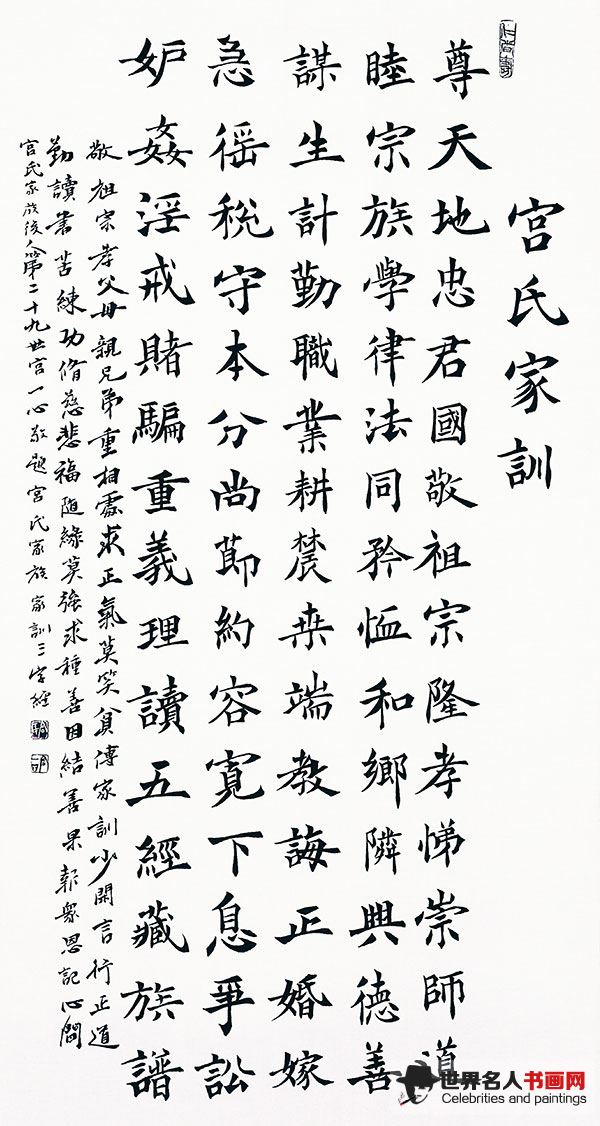 宫氏家訓
尊天地忠君國敬祖宗隆孝悌崇師道
睦宗族學律法同矜恤和鄉隣興德善
謀生計勤職業耕農桒端教誨正婚嫁
急徭稅守本分尚莭約容寬下息爭訟
妒姦淫戒賭騙重義理讀五經藏族譜
敬祖宗孝父母親兄弟重相處求正氣莫笑貧傳家訓少閒言行正道
勤讀書苦練功脩慈悲福隨緣莫強求種善因結善果報衆恩記心間
宫氏家族後人第二十九世宫一心敬題宫氏家族家訓三字經
世界名人书画网
Celebrities and paintings